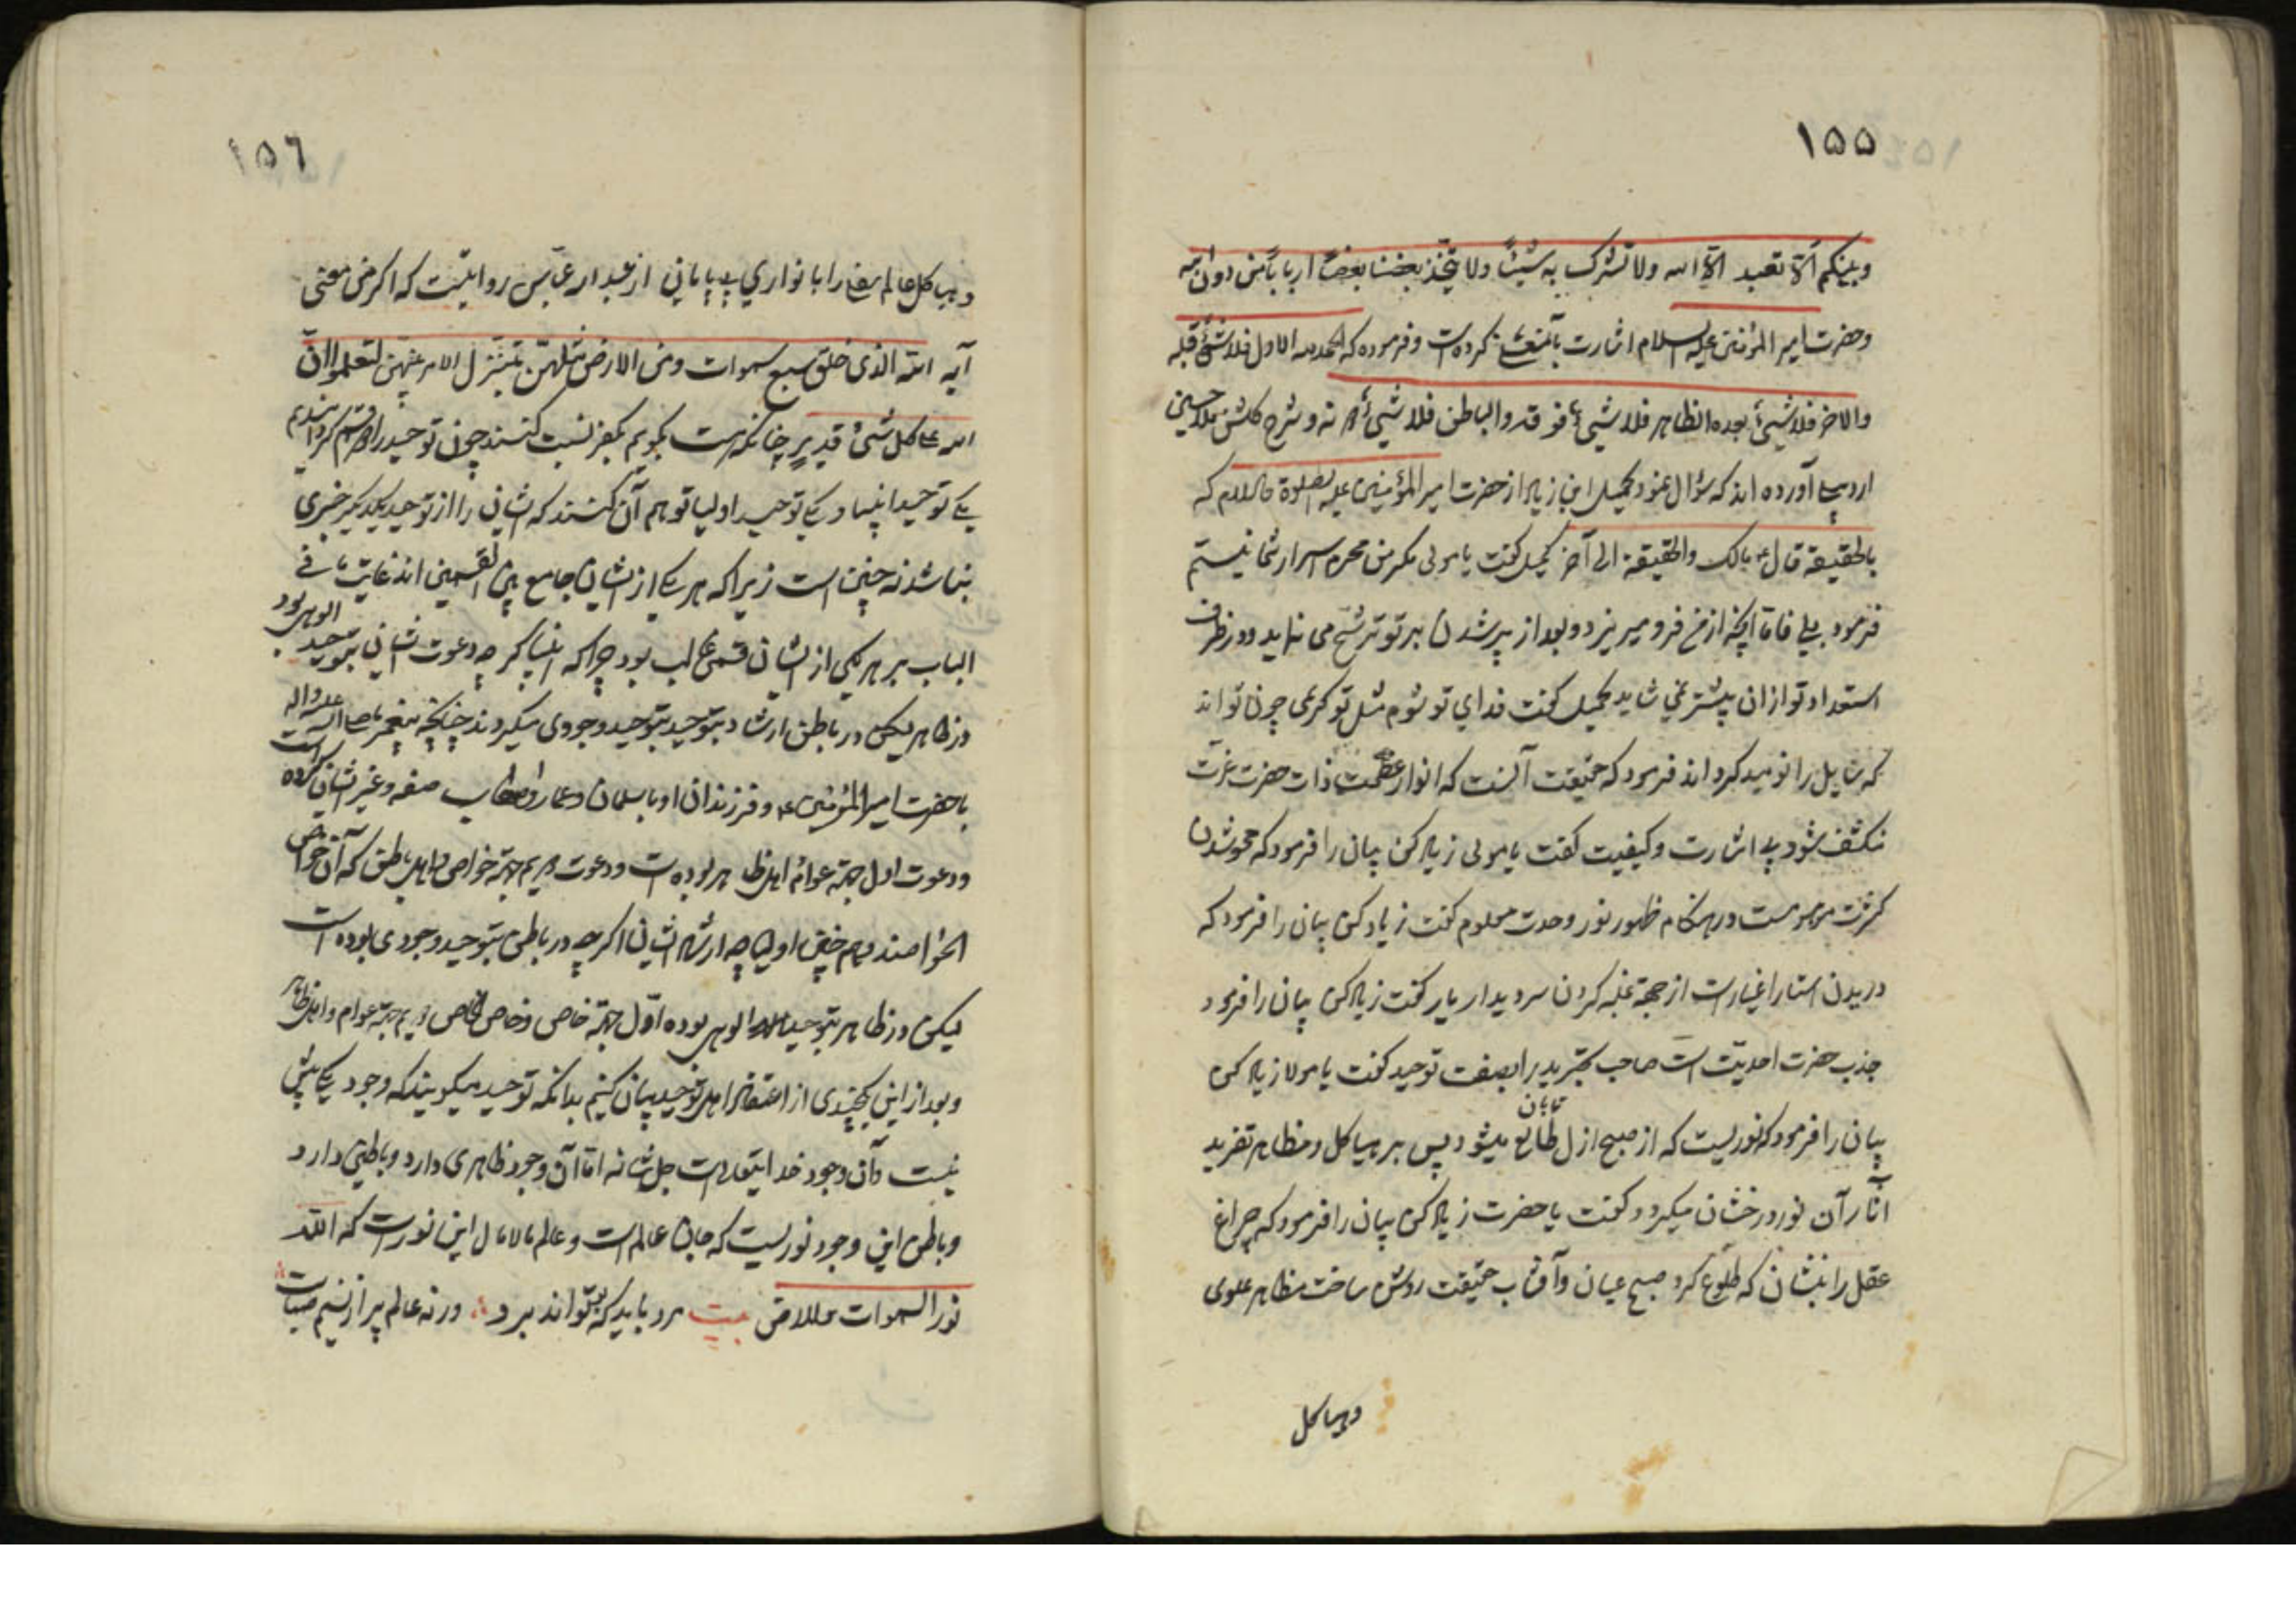 ۱۵۵
وبینکم ألّا نعبد الّا الله ولا نشرک به شیئًا ولا یتّخذ بعضنا بعضًا اربابًا من دون الله
وحضرت امیر المؤمنین علیه السلام اشارت بآنمعنی کرده است وفرموده که الحمدلله الاول فلا شئ قبله
والاخر فلا شیئ بعده والظاهر فلا شیئ فوقه والباطن فلا شیئ دونه ودر شرح کلشن ملا حسین
اردبیلی آورده اند که سؤال نمود کمیل ابن زیاد از حضرت امیر المؤمنین علیه الصلوة والسلام که
ما الحقیقة قال ع مالک والحقیقة الی آخر کمیل کفت یا مولی مکر من محرم اسرار شما نیستم
فرمود بلی فامّا آنچه از من فرو میریزد وبعد از پر شدن بر تو ترشّح می نماید ودر ظرف
استعداد تو از ان بیشتر نمی شاید کمیل کفت فدای تو شوم مثل تو کریمی چون تواند
که سایل را نومید کرداند فرمود که حقیقت آنست که انوار عظمت ذات حضرت عزّت
منکشف شود بی اشارت وکیفیت کفت یا مولی زیاد کن بیان را فرمود که محو شدن
کثرت موهومست در هنکام ظهور نور وحدت معلوم کفت زیاد کن بیان را فرمود که
دریدن استار اغیار است از جهة غلبه کردن سر دیدار یار کفت زیاد کن بیان را فرمود
جذب حضرت احدیّت است صاحب تجرید را بصفت توحید کفت یا مولا زیاد کن
بیان را فرمود که نوریست که از صبح ازل طالع تابان میشود پس بر هیاکل ومظاهر تفرید
آثار آن نور درخشان میکردد کفت یا حضرت زیاد کن بیان را فرمود که چراغ
عقل را بنشان که طلوع کرد صبح عیان وآفتاب حقیقت روشن ساخت مظاهر علوی
وهیاکل
۱۵۶
وهیاکل عالم سفلی را بانواری بی پایانی از عبدالله عبّاس روایتست که اکر من معنی
آیه الله الذی خلق سبع سموات ومن الارض مثلهنّ یتنزّل الامر بینهنّ لتعلموا انّ
الله علی کل شئ قدیر چنانکه هست بکویم بکفر نسبت کنند چون توحید را دو قسم کردانیدیم
یکی توحید انبیا ویکی توحید اولیا توهم آن نکنند که ایشان را از توحید یکدیکر خبری
نباشد نه چنین است زیرا که هر یکی از ایشان جامع بین القسمین اند غایت ما فی
الباب بر هر یکی از ایشان قسمی غالب بود چرا که انبیا کرچه دعوت ایشان بتوحید الوهی بود
در ظاهر لیکن در باطن ارشاد بتوحید بتوحید وجودی میکردند چنانچه پیغمبر ما صلی الله علیه واله
با حضرت امیر المؤمنین ع وفرزندان او با سلمان وعمار واصحاب صفه وغیر ایشان کرده است
ودعوت اول جهة عوام اهل ظاهر بوده است ودعوت دویم جهة خواص واهل باطن که آن خواص
الخواصند وهم چنین اولیا چه ارشاد ایشان اکرچه در باطن بتوحید وجودی بوده است
لیکن در ظاهر بتوحید الوهی بوده اوّل جهة خاص وخاص الخاص دویم جهة عوام واهل ظاهر
وبعد از این بچندی از اعتقاد اهل توحید بیان کنیم بدانکه توحید میکویند که وجود یکی بیش
نیست وآن وجود خدایتعالی است جل شانه امّا آن وجود ظاهری دارد وباطنی دارد
وباطن این وجود نوریست که جان عالم است وعالم مالامال این نور است که الله
نور السموات والارض بیت مرد باید که بو تواند برد ورنه عالم پر از نسیم صباست